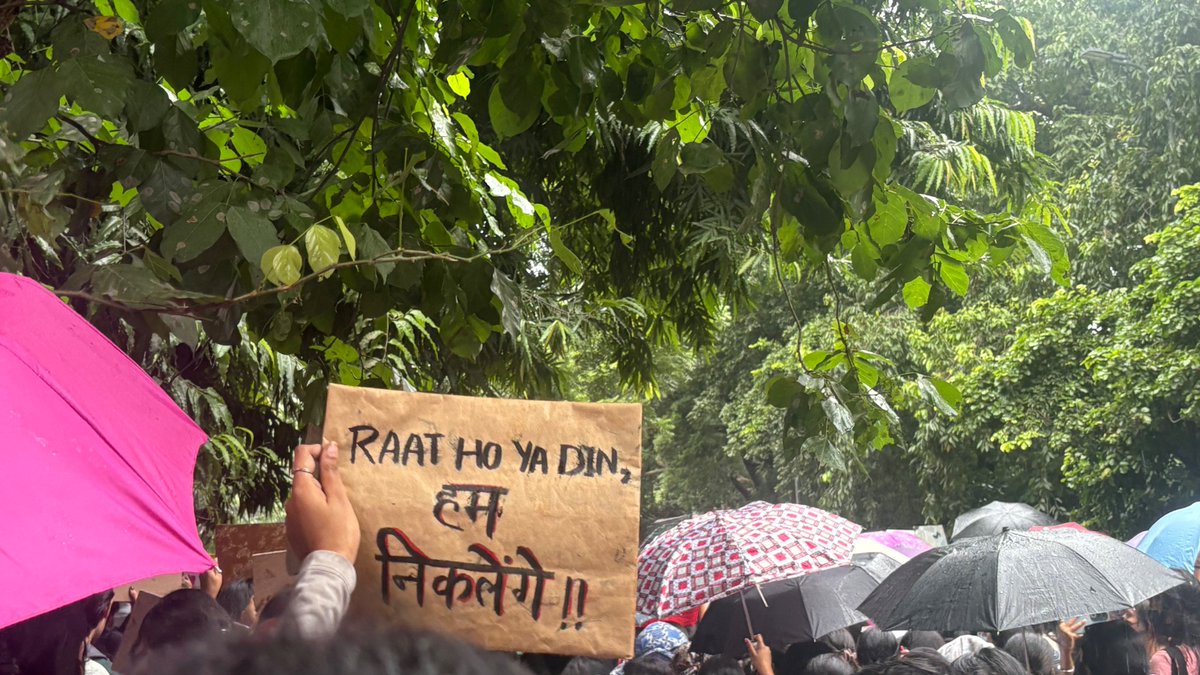 RAAT HO YA DIN,
हम
निकलेंगे !!